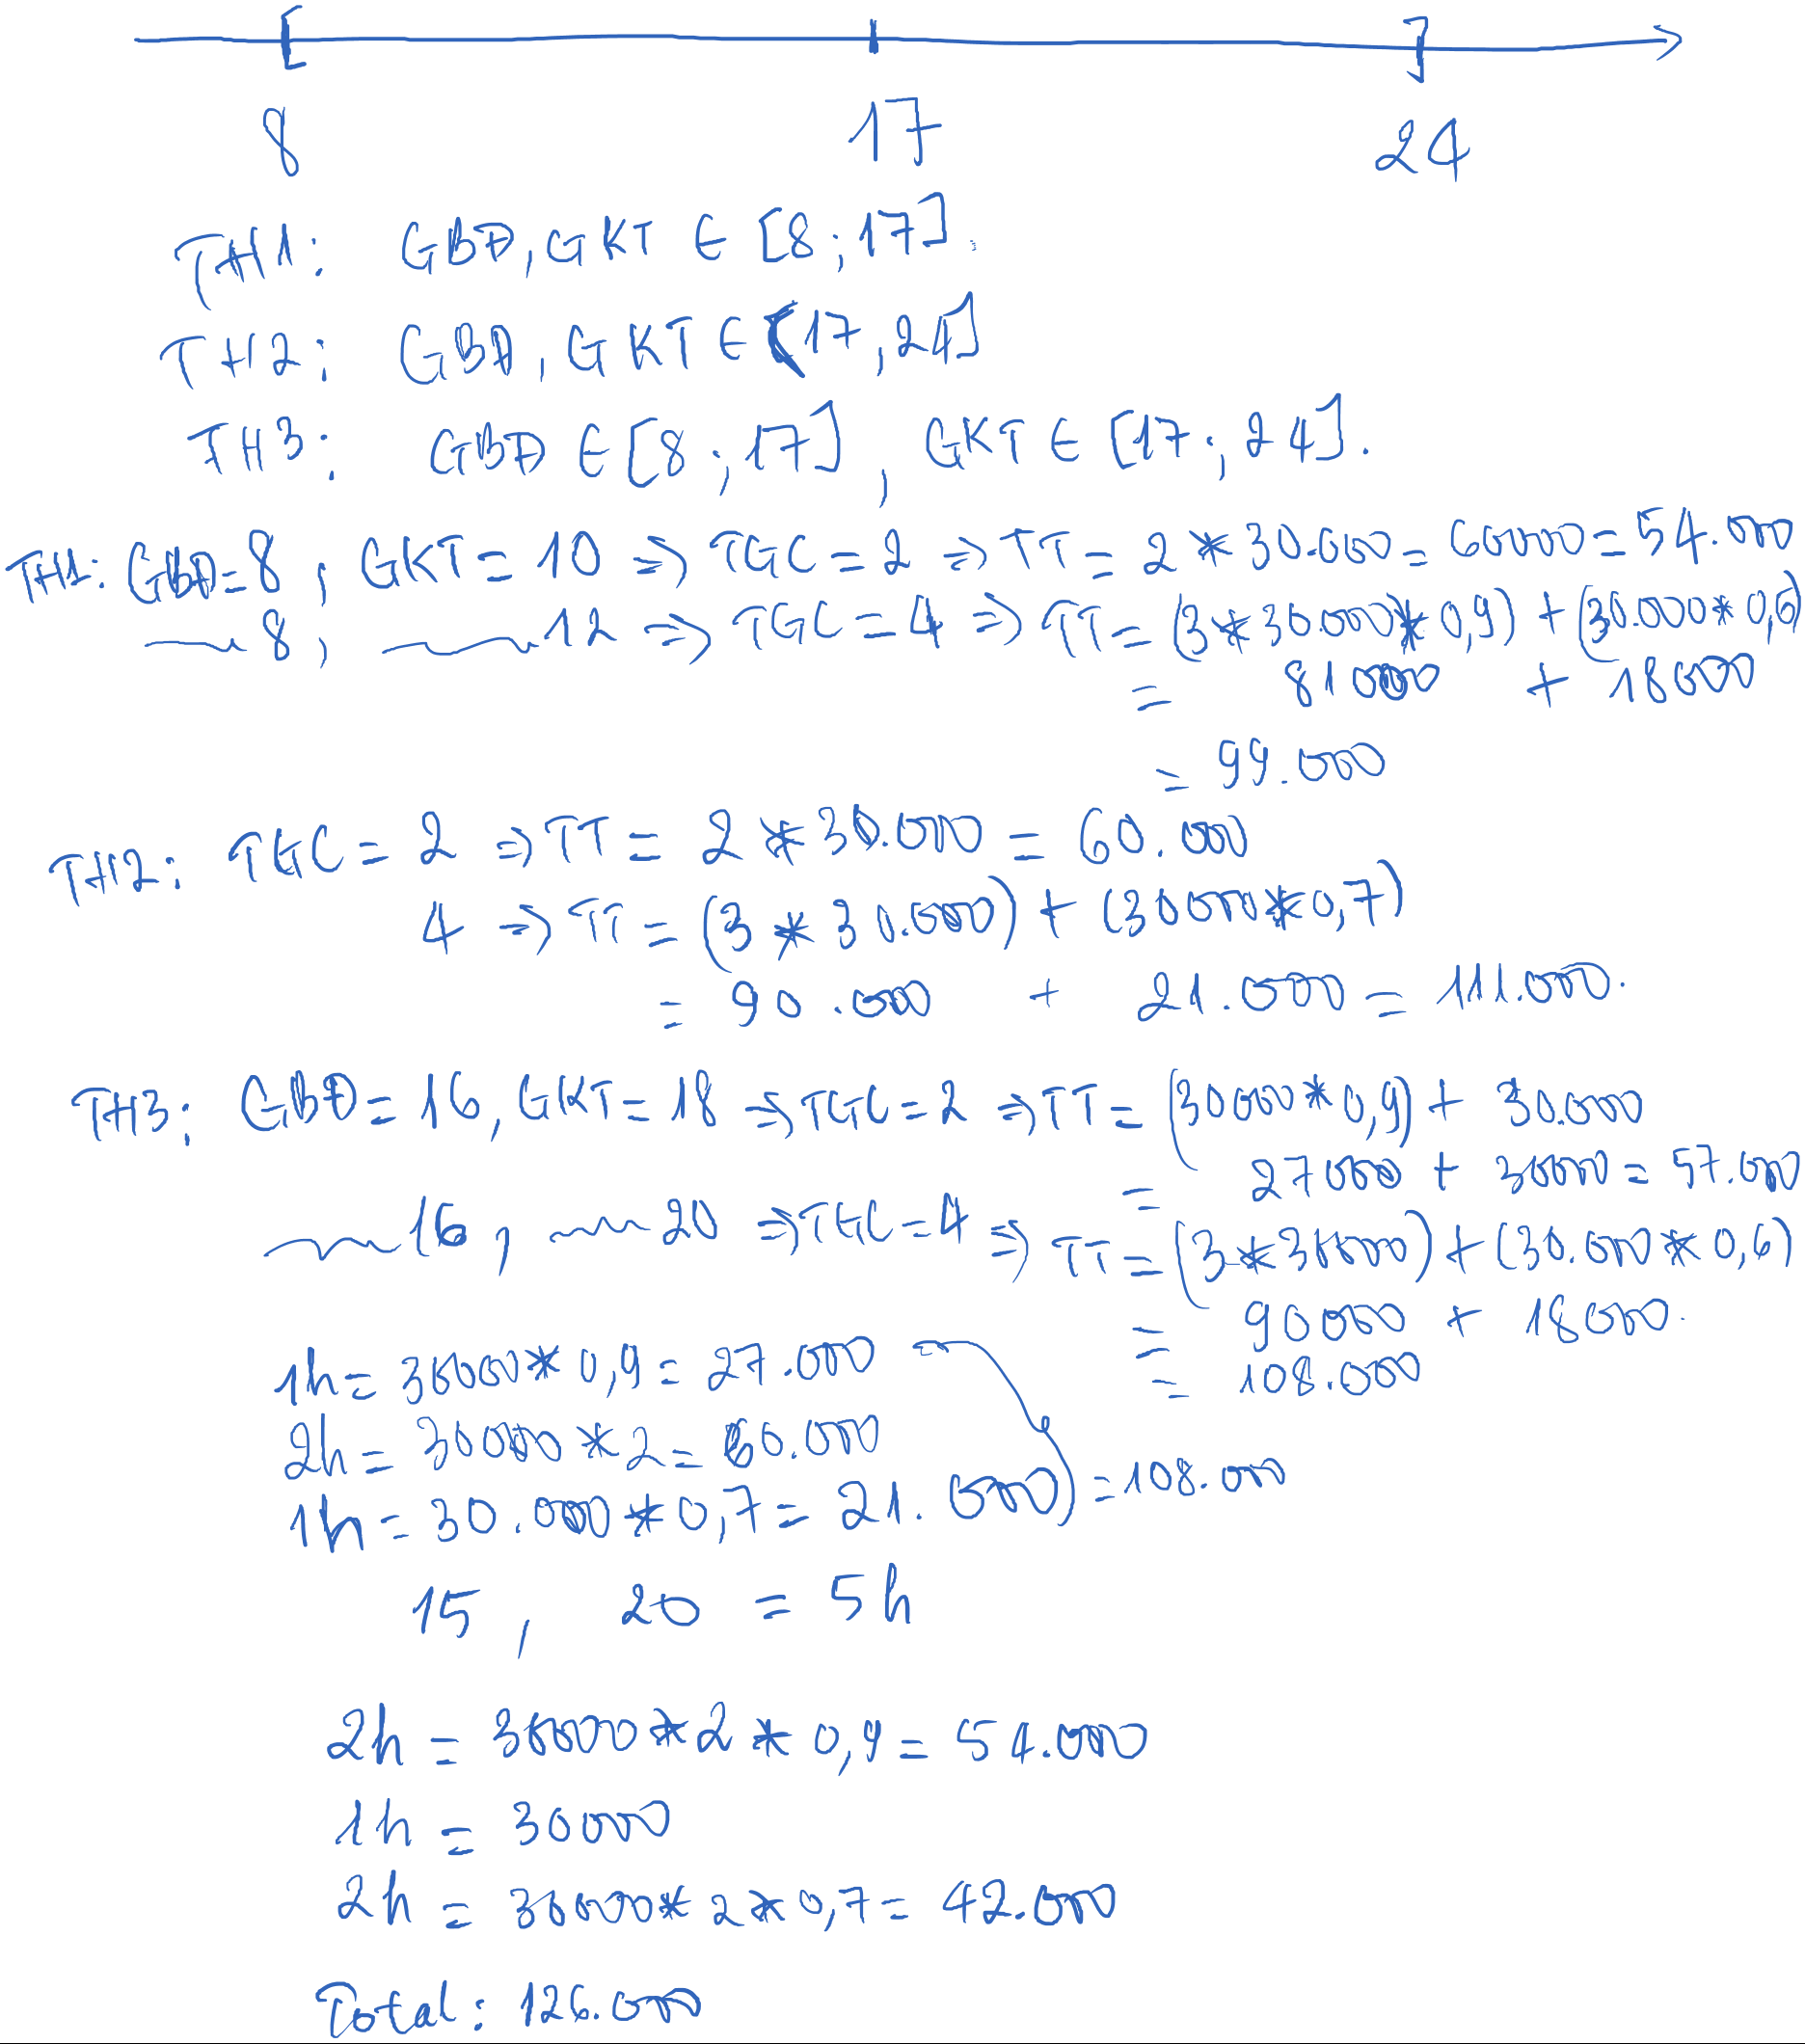 8 17 24
TH1: GBĐ, GKT ∈ [8; 17].
TH2: GBĐ, GKT ∈ (17, 24]
TH3: GBĐ ∈ [8; 17], GKT ∈ [17; 24].
TH1: GBĐ=8, GKT = 10 => TGC = 2 => TT = 2 * 30.000 = 60000 = 54.000
8, 12 => TGC = 4 => TT = (3*30.000*0,9) + (30.000*0,6)
= 81000 + 18000
= 99.000
TH2: TGC = 2 => TT = 2 * 30.000 = 60.000
4 => TT = (3 * 30.000) + (30000*0,7)
= 90.000 + 21.000 = 111.000.
TH3: GBĐ = 16, GKT = 18 => TGC = 2 => TT = (30000*0,9) + 30.000
= 27000 + 30000 = 57.000
16, 20 => TGC = 4 => TT = (3*30000) + (30.000*0,6)
= 90000 + 18000.
= 108.000
1h = 30000*0,9 = 27.000
2h = 30000*2 = 60.000
1h = 30.000*0,7 = 21.000) = 108.000
15, 20 = 5h
2h = 30000*2*0,9 = 54.000
1h = 30000
2h = 30000*2*0,7 = 42.000
Total: 126.000